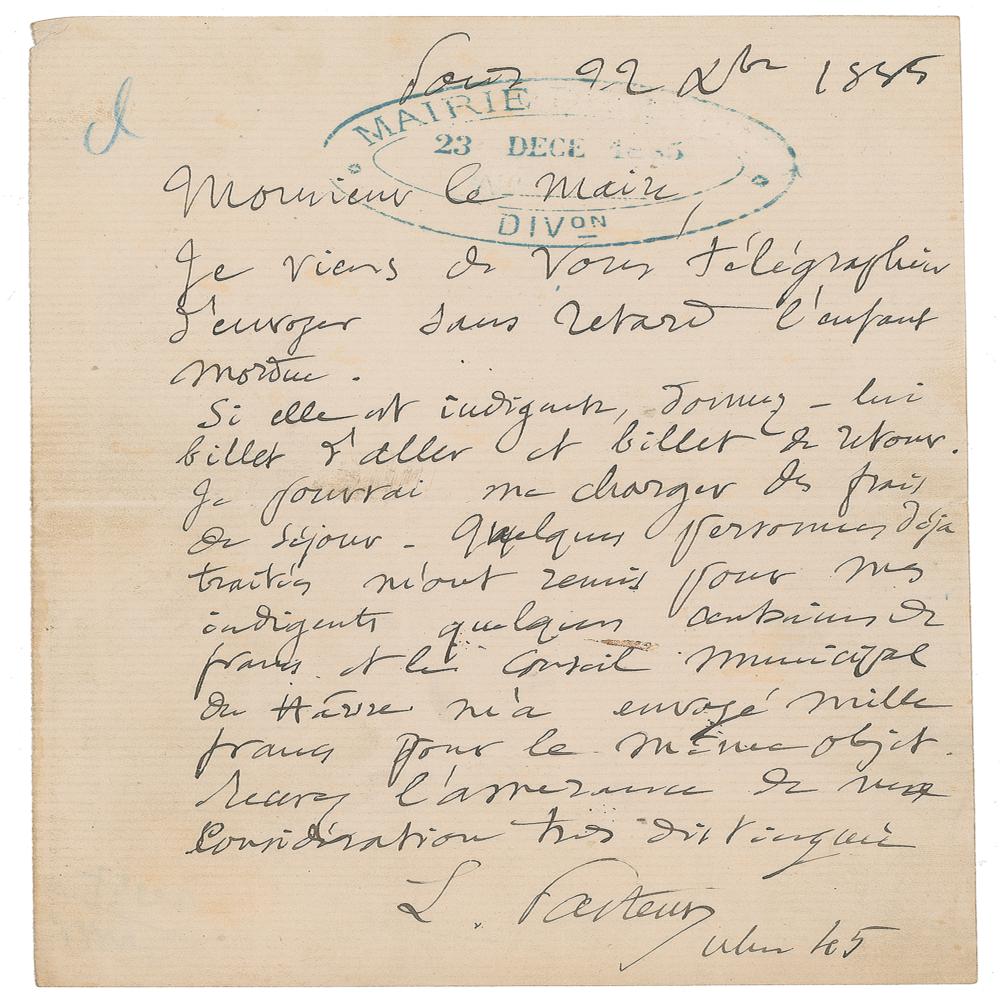 Paris 22 Xbre 1885
MAIRIE
23 DECE 1885
DIVON
Monsieur le Maire,
Je viens de vous télégraphier
d'envoyer sans retard l'enfant
mordue.
Si elle est indigente, donnez-lui
billet d'aller et billet de retour.
Je pourrai me charger des frais
de séjour - Quelques personnes déja
traités m'ont remis pour mes
indigents quelques centaines de
francs et le Conseil municipal
du Hâvre m'a envoyé mille
francs pour le même objet.
Recevez l'assurance de ma
Considération très distinguée
L. Pasteur
45